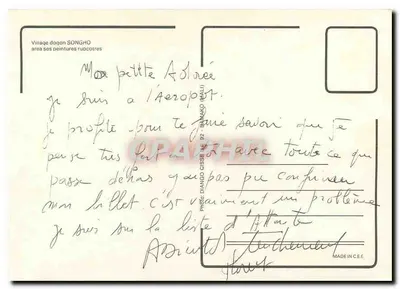 Village dogon SONGHO
avec ses peintures rupestres
Mon petite Adorée
je suis a l'Aeroport
je profite pour te faire savoir que je
pense tres fort a avec toute ce qui
passe dehors pas pu confirmer
mon billet c'est vraiment un problème
je suis sur la liste d'Attente
A Bientot
MADE IN C.E.E.